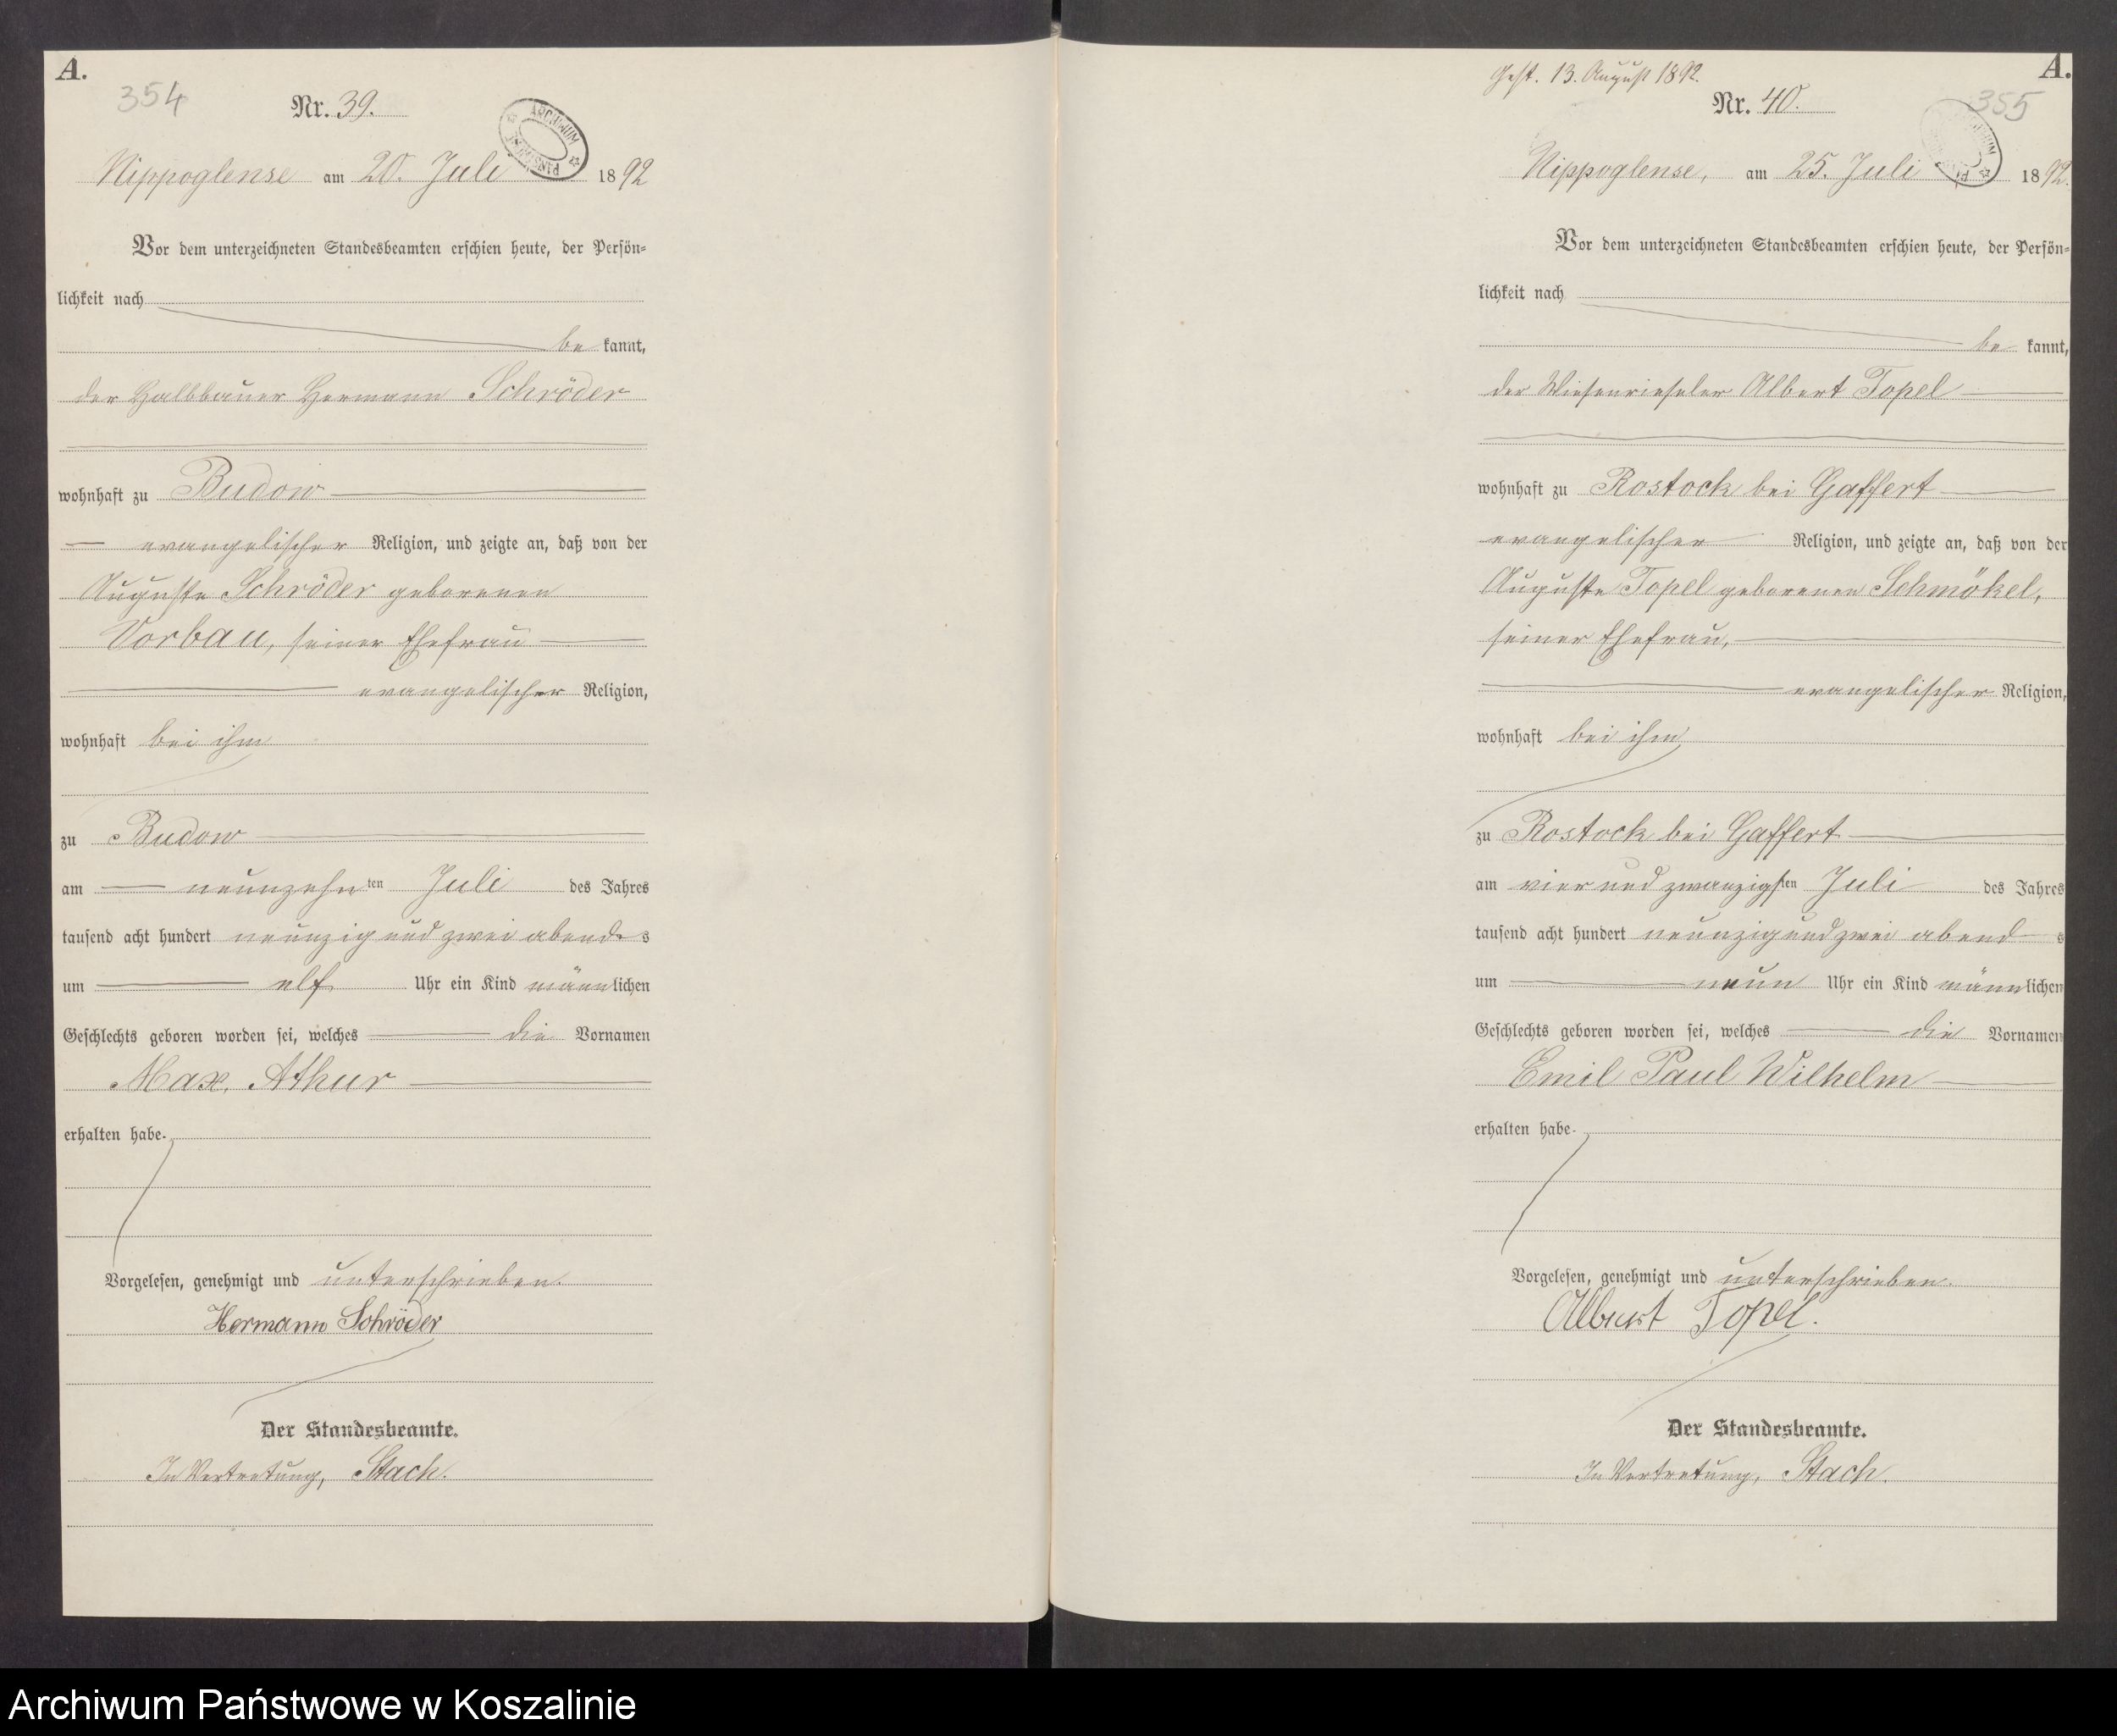 A.
354
Nr. 39.
ARCHIWUM PAŃSTW
Nippoglense am 20. Juli 1892
Vor dem unterzeichneten Standesbeamten erschien heute, der Persön-
lichkeit nach
be kannt,
der Halbbauer Hermann Schröder
wohnhaft zu Budow
evangelischer Religion, und zeigte an, daß von der
Auguste Schröder geborenen
Vorbau, seiner Ehefrau
evangelischer Religion,
wohnhaft bei ihm
zu Budow
am neunzehn ten Juli des Jahres
tausend acht hundert neunzig und zwei abends
um elf Uhr ein Kind männlichen
Geschlechts geboren worden sei, welches die Vornamen
Max, Athur
erhalten habe.
Vorgelesen, genehmigt und unterschrieben.
Hermann Schröder
Der Standesbeamte.
In Vertretung, Stach.
Gest. 13. August 1892.
A.
355
Nr. 40.
Nippoglense, am 25. Juli 1892.
Vor dem unterzeichneten Standesbeamten erschien heute, der Persön-
lichkeit nach
be kannt,
der Wiesenrieseler Albert Topel
wohnhaft zu Rostock bei Gaffert
evangelischer Religion, und zeigte an, daß von der
Auguste Topel geborenen Schmökel,
seiner Ehefrau,
evangelischer Religion,
wohnhaft bei ihm
zu Rostock bei Gaffert
am vier und zwanzigsten Juli des Jahres
tausend acht hundert neunzig und zwei abends
um neun Uhr ein Kind männlichen
Geschlechts geboren worden sei, welches die Vornamen
Emil Paul Wilhelm
erhalten habe.
Vorgelesen, genehmigt und unterschrieben.
Albert Topel.
Der Standesbeamte.
In Vertretung, Stach.
Archiwum Państwowe w Koszalinie